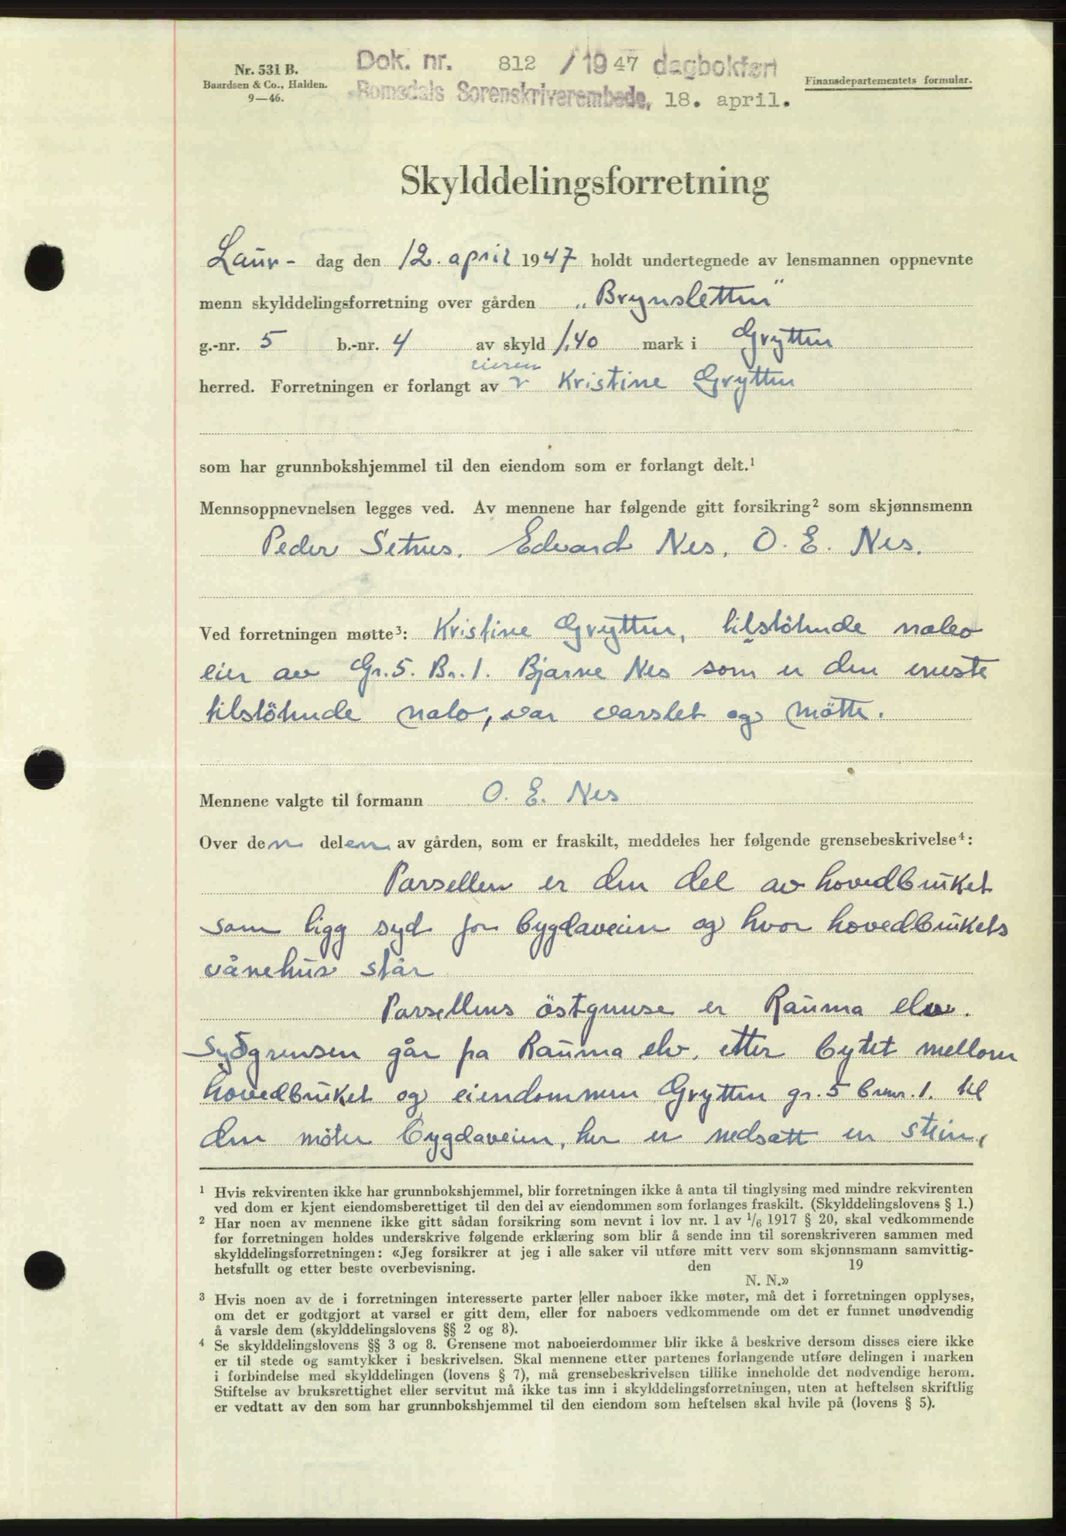 Nr. 531 B.
Baardsen & Co., Halden.
9—46.
Dok. nr. 812 / 1947 dagbokført
Romsdals Sorenskriverembede, 18. april.
Finansdepartementets formular.
Skylddelingsforretning
Laur- dag den 12. april 1947 holdt undertegnede av lensmannen oppnevnte
menn skylddelingsforretning over gården „Brynsletten"
g.-nr. 5 b.-nr. 4 av skyld 1,40 mark i Grytten
eieren
herred. Forretningen er forlangt av Kristine Grytten
som har grunnbokshjemmel til den eiendom som er forlangt delt.¹
Mennsoppnevnelsen legges ved. Av mennene har følgende gitt forsikring² som skjønnsmenn
Peder Setnes, Edvard Nes, O. E. Nes.
Ved forretningen møtte³: Kristine Grytten, tilstötende nabo
eier av Gr. 5. Br. 1. Bjarne Nes som er den eneste
tilstötende nabo, var varslet og mötte.
Mennene valgte til formann O. E. Nes
Over den delen av gården, som er fraskilt, meddeles her følgende grensebeskrivelse⁴:
Parsellen er den del av hovedbruket
som ligg syd for bygdaveien og hvor hovedbrukets
vånehus står
Parsellens östgrense er Rauma elv.
Sydgrensen går fra Rauma elv. etter bytet mellom
hovedbruket og eiendommen Grytten gr. 5 brnr. 1. til
den möter bygdaveien, her er nedsatt en stein,
¹ Hvis rekvirenten ikke har grunnbokshjemmel, blir forretningen ikke å anta til tinglysing med mindre rekvirenten
ved dom er kjent eiendomsberettiget til den del av eiendommen som forlanges fraskilt. (Skylddelingslovens § 1.)
² Har noen av mennene ikke gitt sådan forsikring som nevnt i lov nr. 1 av 1/6 1917 § 20, skal vedkommende
før forretningen holdes underskrive følgende erklæring som blir å sende inn til sorenskriveren sammen med
skylddelingsforretningen: «Jeg forsikrer at jeg i alle saker vil utføre mitt verv som skjønnsmann samvittig-
hetsfullt og etter beste overbevisning. den 19
N. N.»
³ Hvis noen av de i forretningen interesserte parter eller naboer ikke møter, må det i forretningen opplyses,
om det er godtgjort at varsel er gitt dem, eller for naboers vedkommende om det er funnet unødvendig
å varsle dem (skylddelingslovens §§ 2 og 8).
⁴ Se skylddelingslovens §§ 3 og 8. Grensene mot naboeierdommer blir ikke å beskrive dersom disses eiere ikke
er til stede og samtykker i beskrivelsen. Skal mennene etter partenes forlangende utføre delingen i marken
i forbindelse med skylddelingen (lovens § 7), må grensebeskrivelsen tillike inneholde det nødvendige herom.
Stiftelse av bruksrettighet eller servitut må ikke tas inn i skylddelingsforretningen, uten at heftelsen skriftlig
er vedtatt av den som har grunnbokshjemmel til den eiendom som heftelsen skal hvile på (lovens § 5).